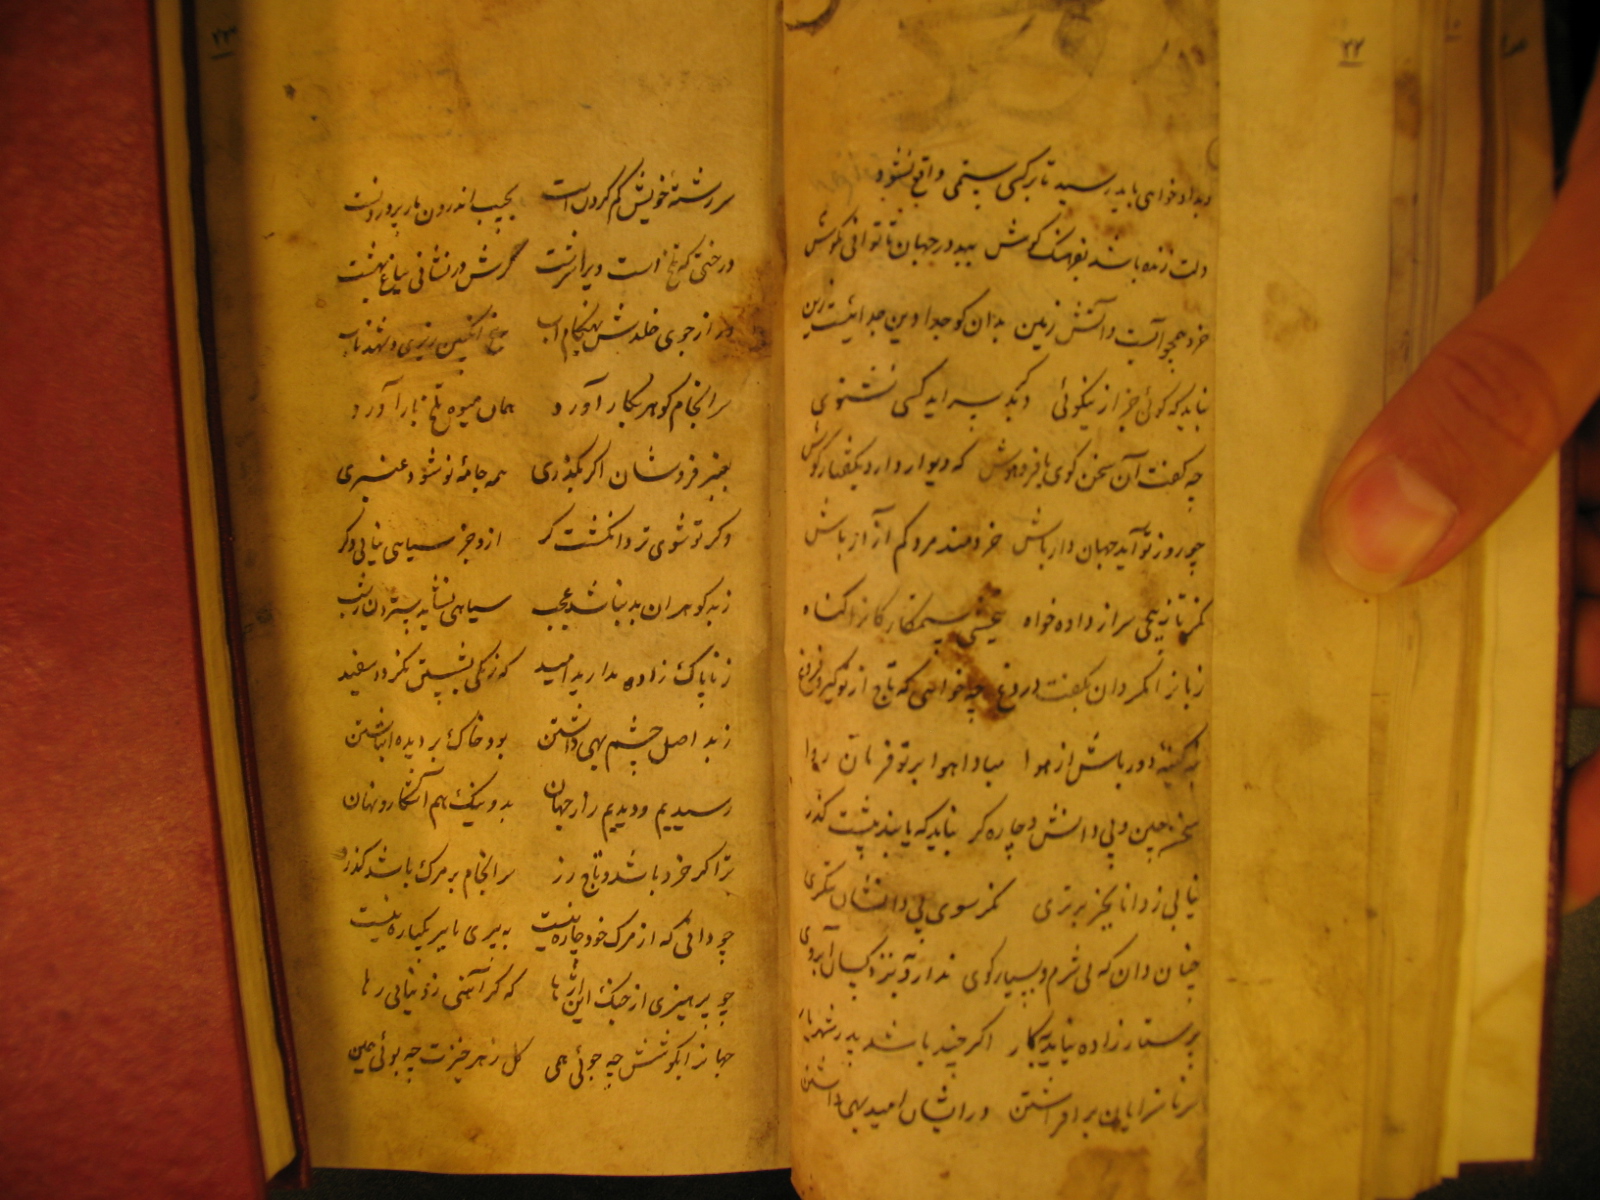 ۲۲
و بداد خواهی باید رسید تا بر کسی ستمی واقع نشود
دلت زنده باشد بفرهنگ و هوش ببد در جهان تا توانی مکوش
خرد همچو آبست و دانش زمین بدان کو جدا وین جدا نیست زین
نباید که گوئی جز از نیکوئی وگر بد سراید کسی نشنوی
چه گفت آن سخن گوی با فر و هوش که دیوار دارد بگفتار گوش
چو روز تو آید جهان دار باش خردمند مردم کم آزار باش
مگر تا نپیچی سر از داده خواه نبخشی ستمکارگان را گناه
زبان را مگردان بگفت دروغ چه خواهی که تاج از تو گیرد فروغ
ز کینه دور باش از هوا مبادا هوا بر تو فرمان روا
سخن چین و بی دانش و چاره گر نباید که یابند پیشت گذر
نیابی ز دانا بجز برتری مگر سوی بی دانشان ننگری
چنان دان که بی شرم و بسیار گوی ندارد بنزد کسان آبروی
پرستار زاده نیاید بکار اگر چند باشد پدر شهریار
سر ناسزایان برافراشتن وز ایشان امید بهی داشتن
۲۳
سر رشتهٔ خویش گم کردن است بجیب اندرون مار پروردنست
درختی که تلخ است ویرا سرشت گرش در نشانی بباغ بهشت
ور از جوی خلدش بهنگام آب به بیخ انگبین ریزی و شهد ناب
سرانجام گوهر بکار آورد همان میوه تلخ بار آورد
بعنبر فروشان اگر بگذری همه جامهٔ تو شود عنبری
وگر تو شوی نزد انگشت گر ازو جز سیاهی نیابی دگر
ز بد گوهران بد نباشد عجب سیاهی نشاید ستردن ز شب
ز ناپاک زاده مدارید امید که زنگی بشستن نگردد سفید
ز بد اصل چشم بهی داشتن بود خاک بر دیده انباشتن
رسیدیم و دیدیم راز جهان بد و نیک هم آشکار و نهان
ترا گر خرد باشد و تاج زر سرانجام بر مرگ باشد گذر
چو دانی که از مرگ خود چاره نیست به پیری یا پیر یکباره نیست
چو پرهیزی از جنگ این اژدها که گر آهنی زو نیابی رها
جهانرا بکوشش چه جوئی همی گل زهر خیزت چه بوئی همی